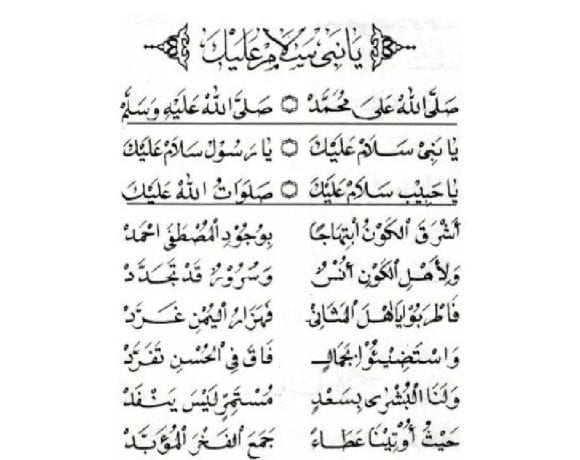 يَا نَبِي سَلَامْ عَلَيْكَ
صَلَّى اللهُ عَلَى مُحَمَّدْ ۞ صَلَّى اللهُ عَلَيْهِ وَسَلَّمْ
يَا نَبِيْ سَـلَامْ عَلَيْكَ ۞ يَا رَسُوْلْ سَلَامْ عَلَيْكَ
يَا حَبِيْب سَلَامْ عَلَيْكَ ۞ صَلَوَاتُ اللهُ عَلَيْكَ
أَشْرَقَ الْكَوْنُ ابْتِهَاجًا بِوُجُوْدِ الْمُصْطَفَى احْمَدْ
وَلِأَهْلِ الْكَوْنِ أُنْسٌ وَسُرُوْرٌ قَدْ تَجَدَّدْ
فَاطْرَبُوْا يَاهْلَ الْمَثَانِيْ فَهَزَارُ الْيُمْنِ غَرَّدْ
وَاسْتَضِيْئُوْا بِجَمَالٍ فَاقَ فِي الْحُسْنِ تَفَرَّدْ
وَلَنَا الْبُشْرَى بِسَعْدٍ مُسْتَمِرٍّ لَيْسَ يَنْفَدْ
حَيْثُ أُوْتِيْنَا عَطَاءً جَمَعَ الْفَخْرَ الْمُؤَبَّدْ